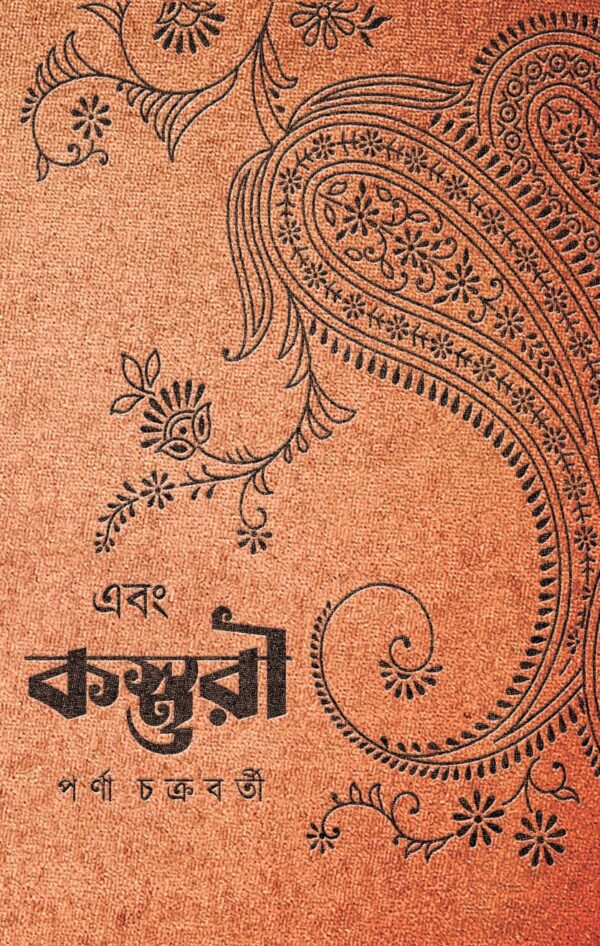 এবং
কস্তুরী
পর্ণা চক্রবর্তী